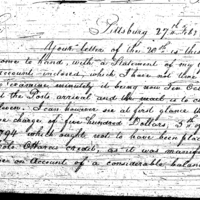 Pittsburg 27th Feb
Your letter of the 20th is this
come to hand, with a Statement of my
Accounts inclosed, which I have not time
to examine minutely it being now Six Oclock
the Post arrived and the mail is to c
I can however see at first glance th
charge of five hundred Dollars 5th
1794 which ought not to have been pla
Credit, as it was manif
on Account of a considerable balan